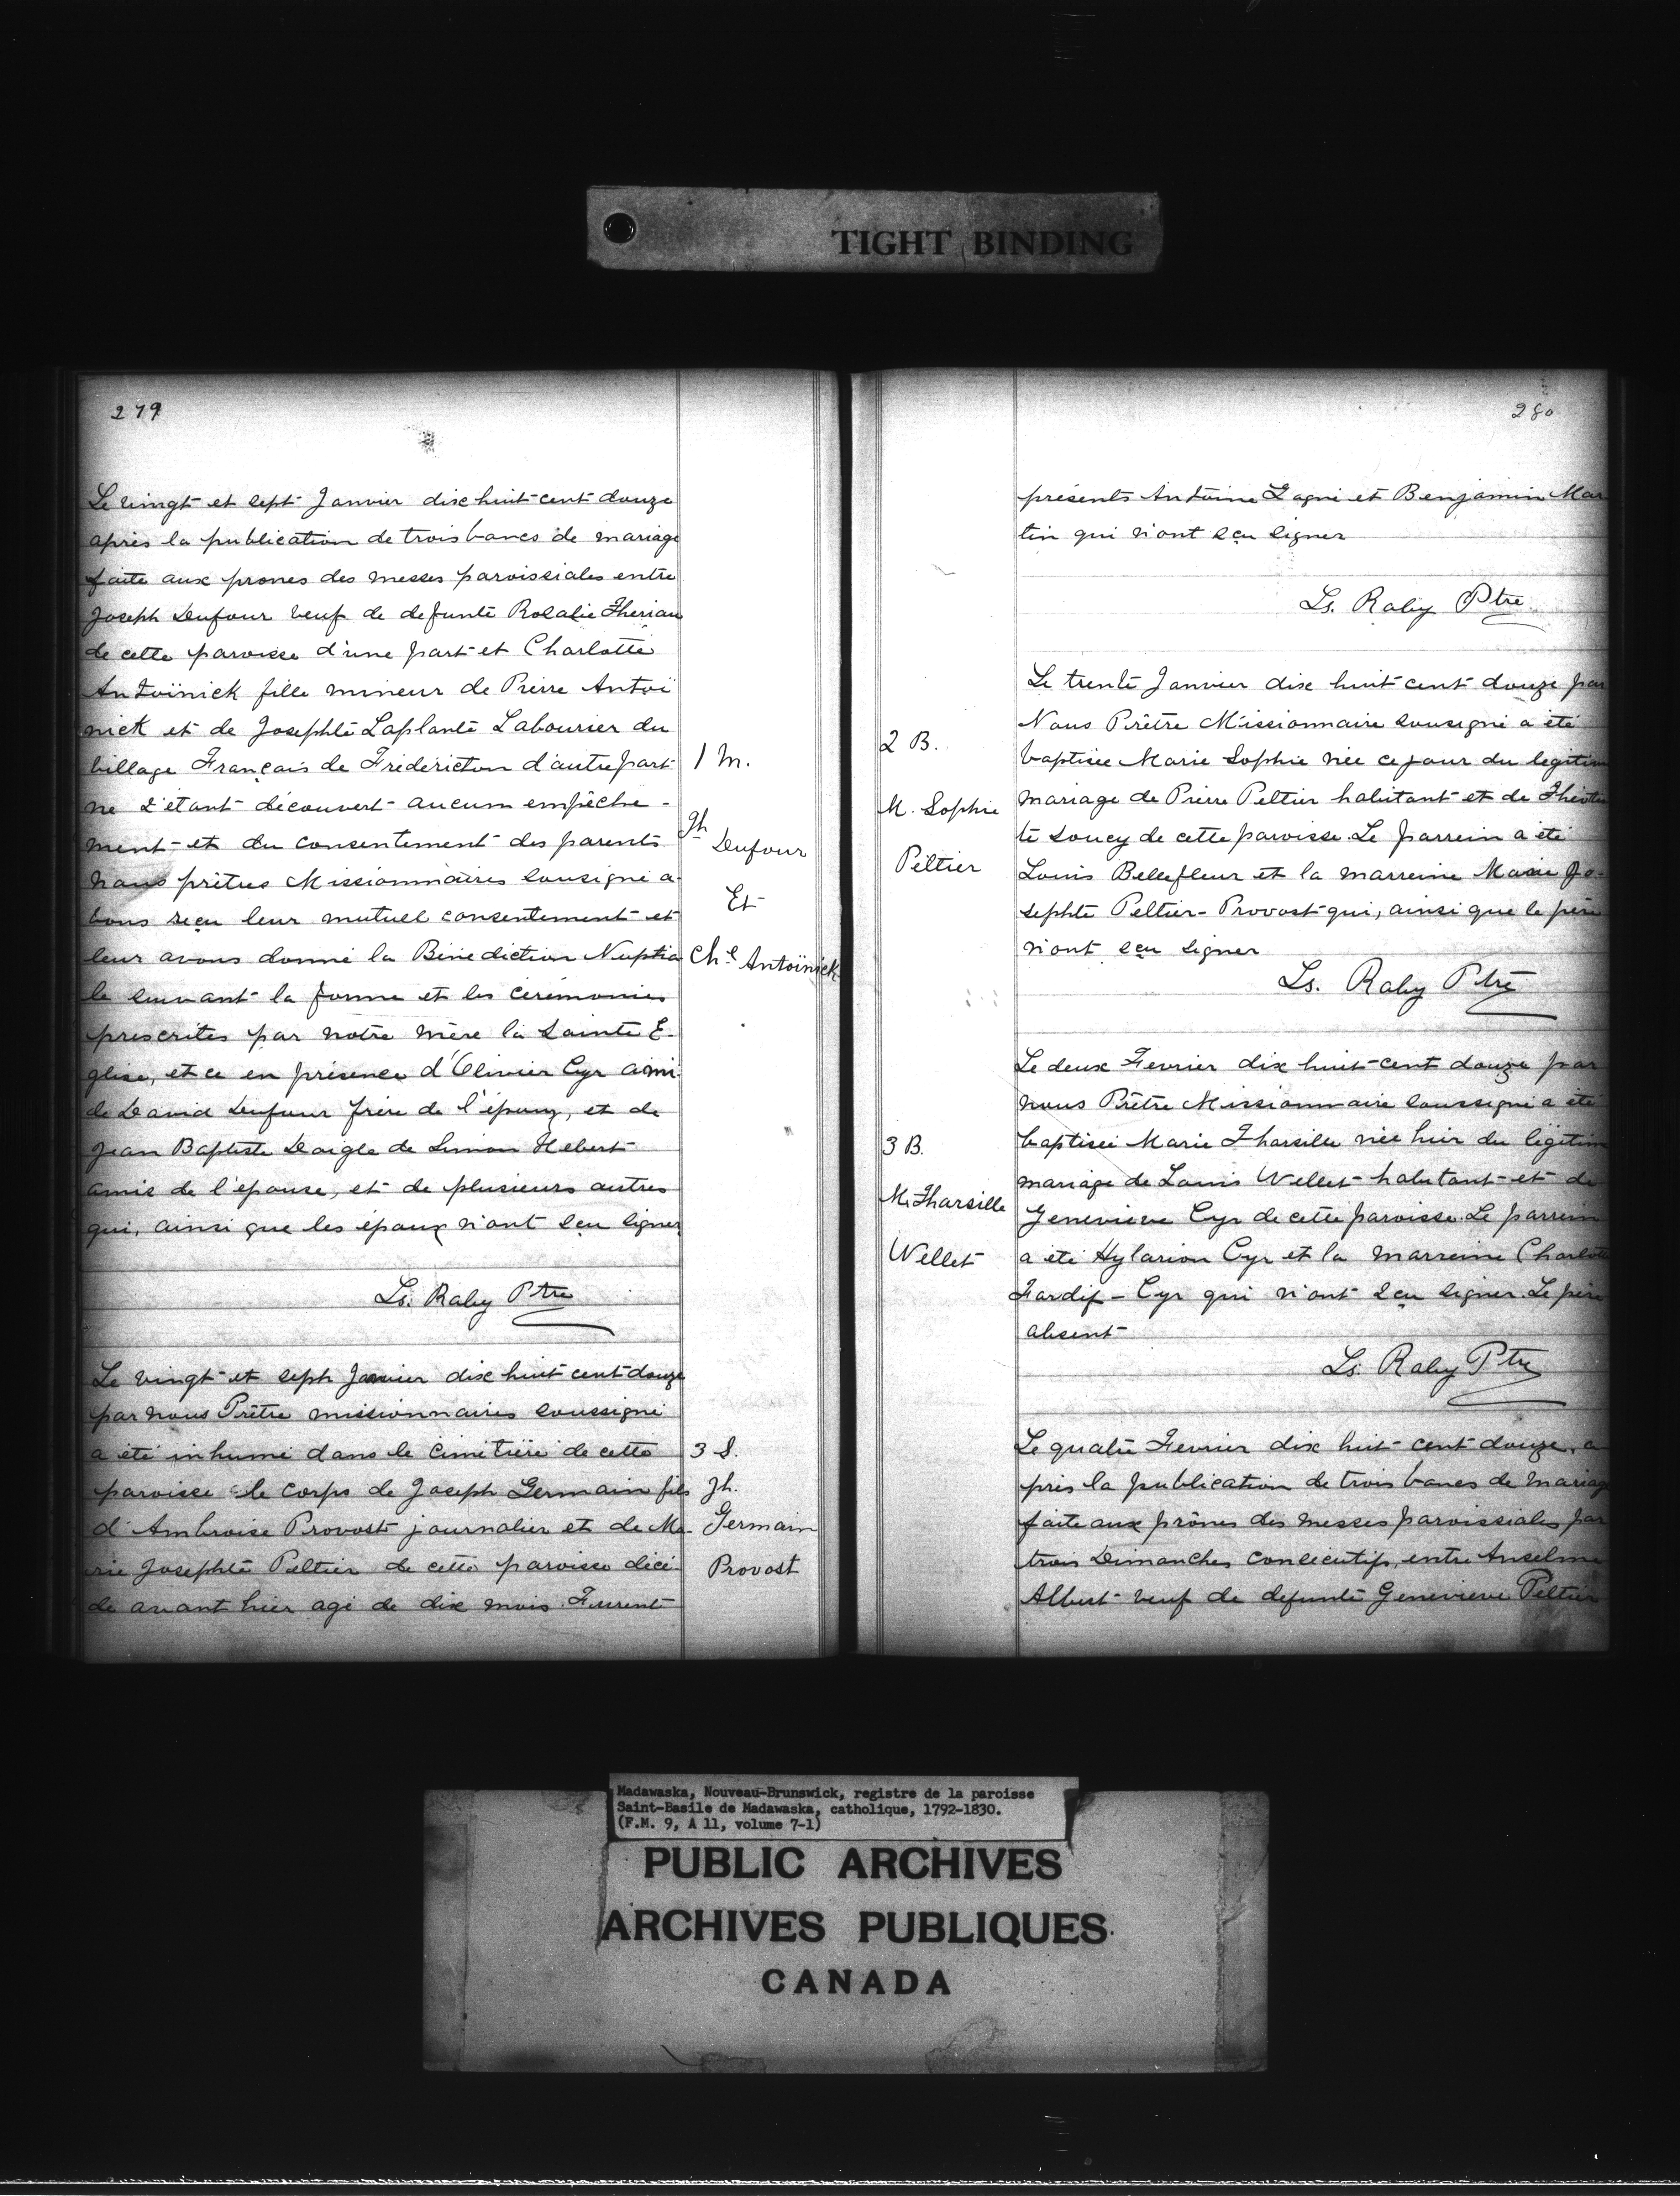 TIGHT BINDING
279
Le vingt et sept Janvier dix huit cent douze
après la publication de trois bancs de mariage
faite aux prones des messes paroissiales entre
Joseph Dufour veuf de defunte Rosalie Therian
de cette paroisse d'une part et Charlotte
Antoïnick fille mineur de Pierre Antoï
nick et de Josephte Laplante Labourier du
village Français de Frédéricton d'autre part
ne s'étant découvert aucum empêche-
ment et du consentement des parents
Nous prêtres Missionnaires sousigné a-
vons reçu leur mutuel consentement et
leur avons donné la Bénédiction Nuptia
le suivant la forme et les cérémonies
prescrites par notre mère la Sainte E-
glise, et ce en présence d'Olivier Cyr ami
de David Dufour frère de l'époux, et de
Jean Baptiste Daigle de Simon Hebert
amis de l'épouse, et de plusieurs autres
qui, ainsi que les époux n'ont sçu signer
Ls. Raby Ptre
1 M.
Jh
Dufour
Et
Chte Antoïnick
Le vingt et seph Janvier dix huit cent douze
par nous Prêtre missionnaires soussigné
a été inhumé dans le cimetière de cette
paroisse le corps de Joseph Germain fils
d'Ambroise Provost journalier et de Ma-
rie Josephte Peltier de cette paroisse décé-
dé avant hier agé de dix mois. Furent
3 S.
Jh.
Germain
Provost
280
présents Antoine Gagné et Benjamin Mar
tin qui n'ont sçu signer
Ls. Raby Ptre
Le trente Janvier dix huit cent douze par
Nous Prêtre Missionnaire sousigné a été
baptisée Marie Sophie née ce jour du legitim
mariage de Pierre Peltier habitant et de Théotis
te Soucy de cette paroisse. Le parrein a été
Louis Bellefleur et la marreine Marie Jo-
sephte Peltier-Provost qui, ainsi que le père
n'ont sçu signer
Ls. Raby Ptre
2 B.
M. Sophie
Peltier
Le deux Fevrier dix huit cent douze par
nous Prêtre Missionnaire soussigné a été
baptisée Marie Tharsille née hier du légitim
mariage de Louis Wellet habitant et de
Geneviève Cyr de cette paroisse. Le parrein
a été Hylarion Cyr et la marreine Charlott
Tardif-Cyr qui n'ont sçu signer. Le père
absent
Ls. Raby Ptre
3 B.
M. Tharsille
Wellet
Le quatre Fevrier dix huit cent douze, a
près la publication de trois bancs de mariag
faite aux prônes des messes paroissiales par
trois Dimanches consécutifs, entre Anselme
Albert veuf de defunte Genevieve Peltier
Madawaska, Nouveau-Brunswick, registre de la paroisse
Saint-Basile de Madawaska, catholique, 1792-1830.
(F.M. 9, A 11, volume 7-1)
PUBLIC ARCHIVES
ARCHIVES PUBLIQUES
CANADA